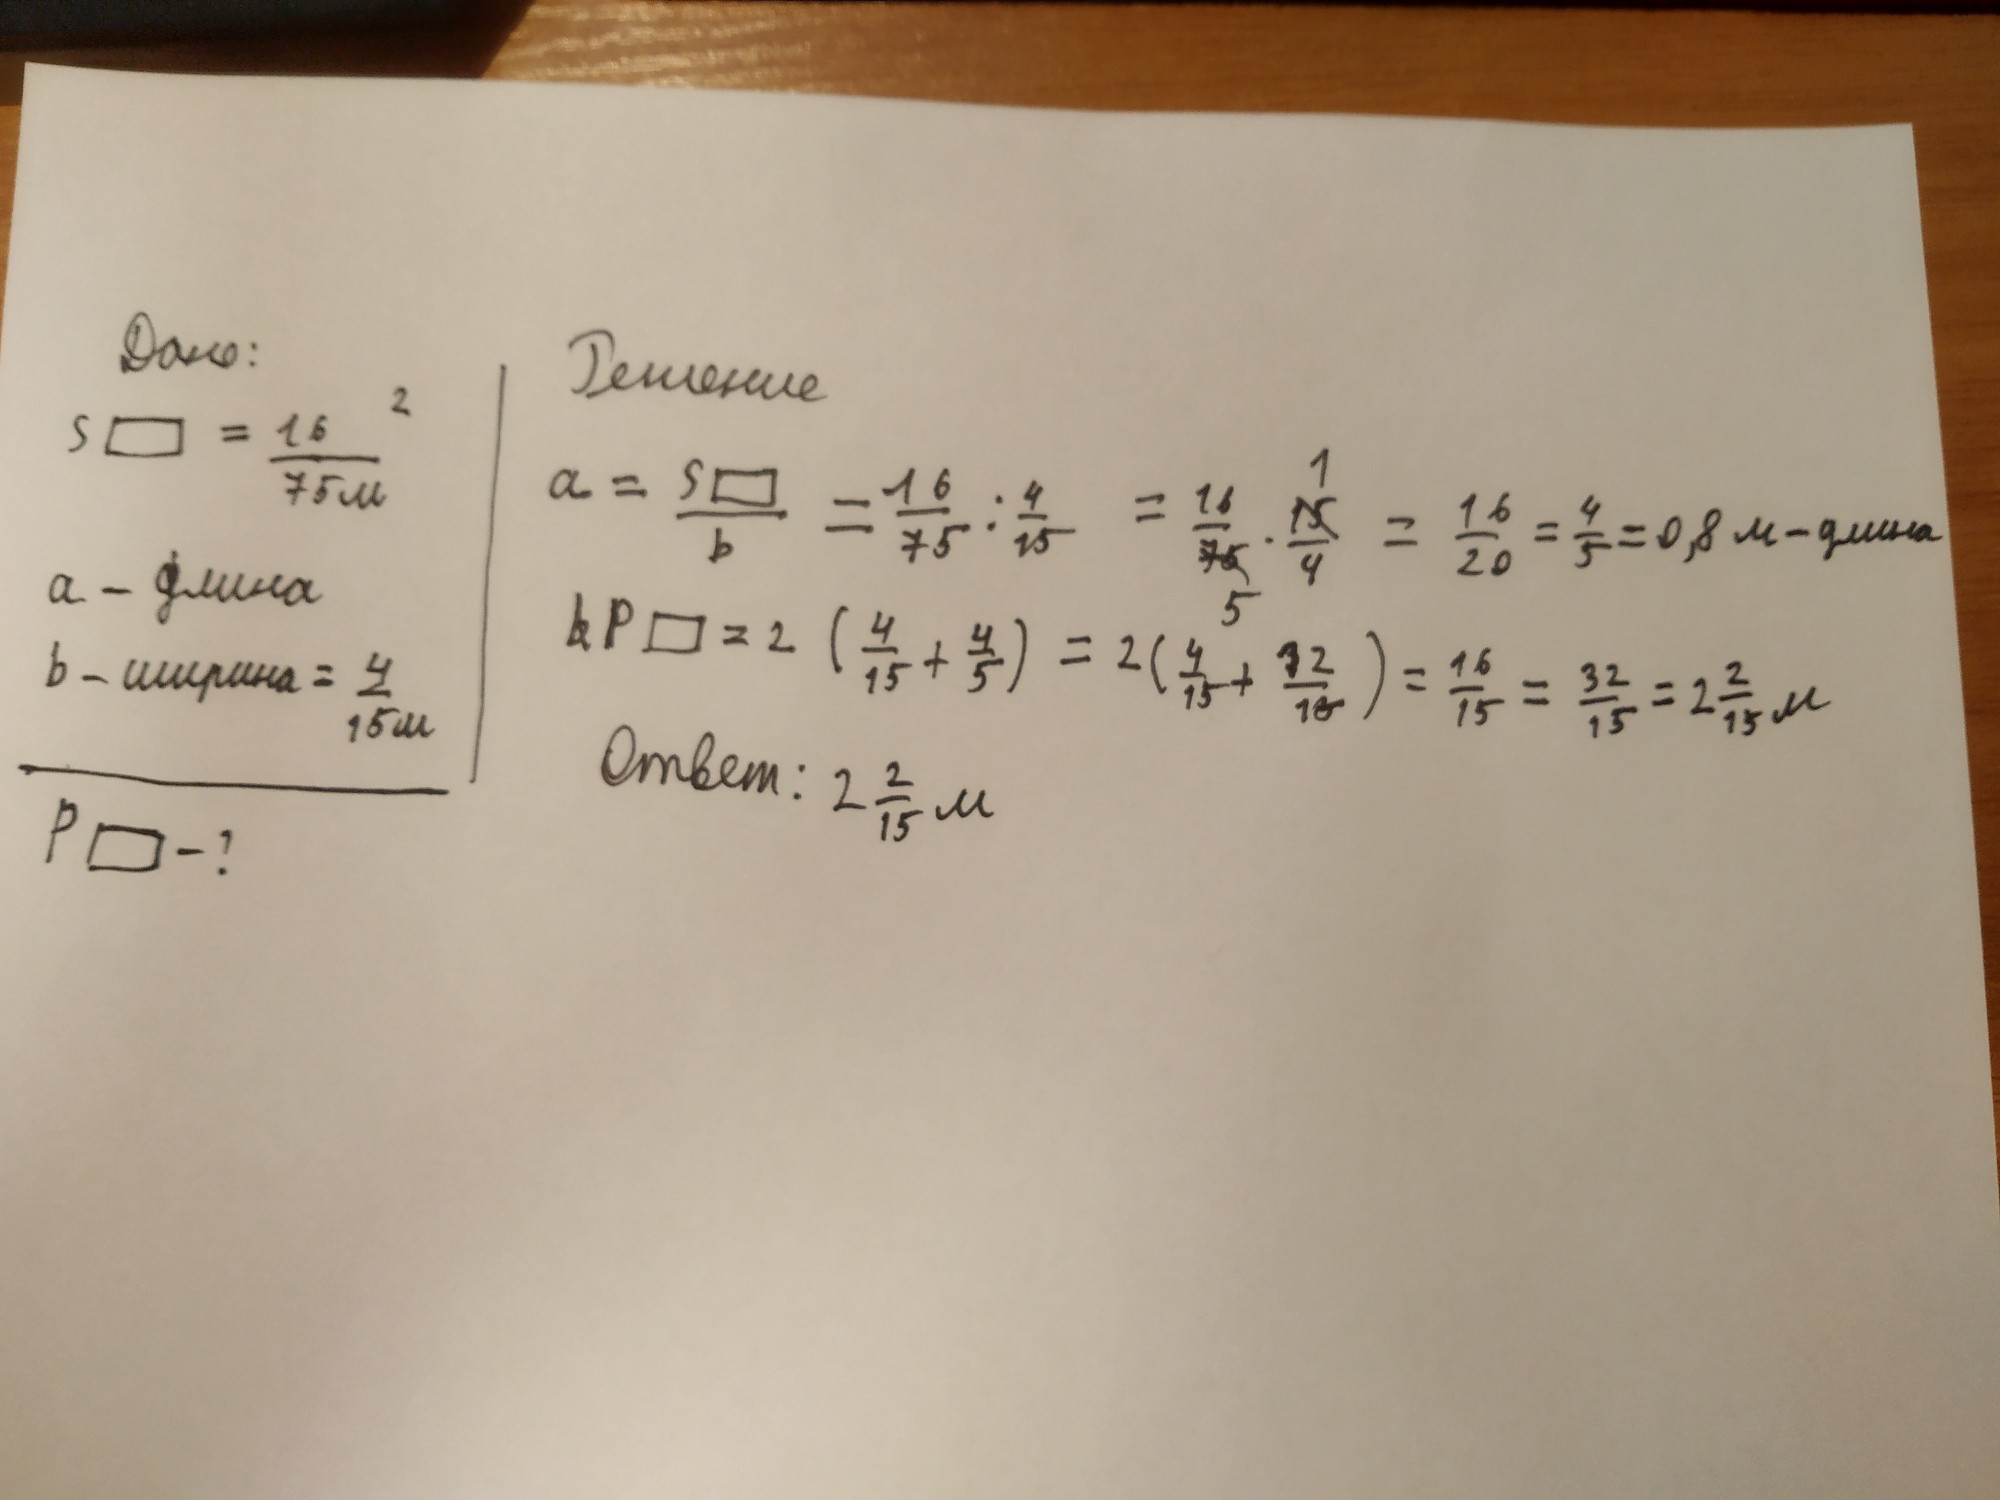 Дано:
S▭ = 16/75м ²
a – длина
b – ширина = 4/15м
P▭ – ?
Решение
a = S▭/b = 16/75 : 4/15 = 16/75 5 · 15/4 1 = 16/20 = 4/5 = 0,8 м – длина
P▭ = 2 (4/15 + 4/5) = 2 (4/15 + 12/15) = 16/15 = 32/15 = 2 2/15 м
Ответ: 2 2/15 м